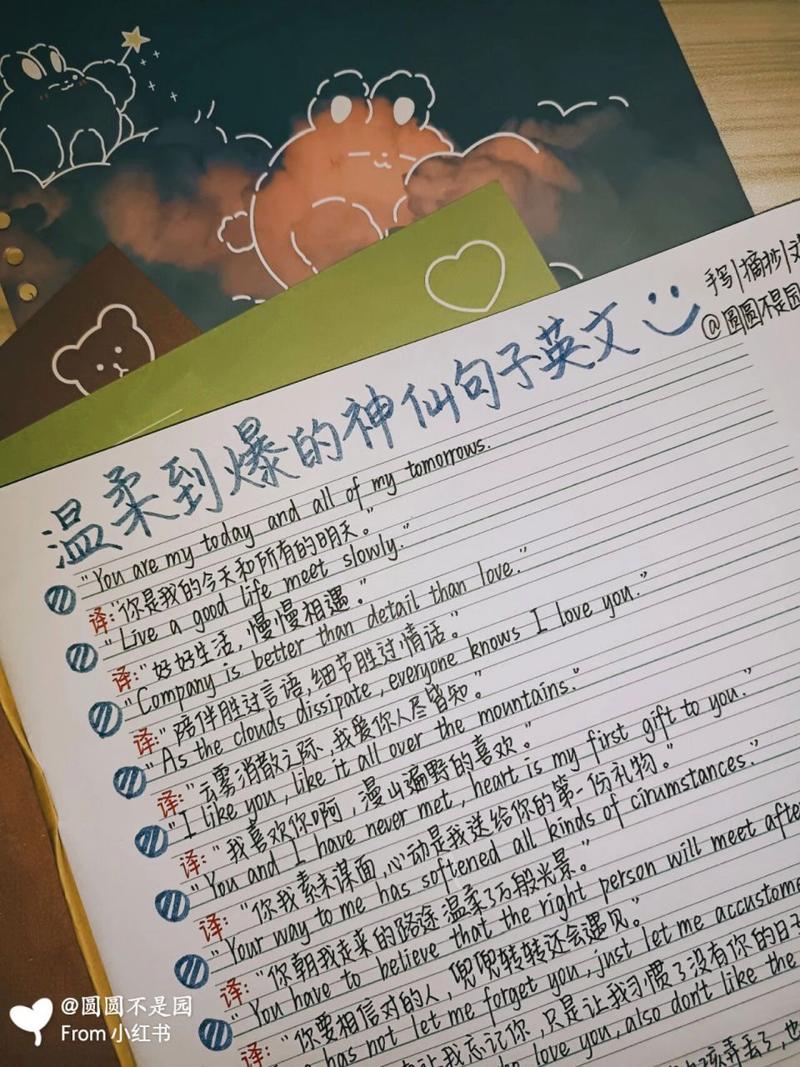 手写|摘抄|
@圆圆不是园
温柔到爆的神仙句子英文
"You are my today and all of my tomorrows.
译:"你是我的今天和所有的明天。"
"Live a good life meet slowly."
译:"好好生活,慢慢相遇。"
"Company is better than detail than love."
译:"陪伴胜过言语,细节胜过情话。"
"As the clouds dissipate, everyone knows I love you."
译:"云雾消散之际,我爱你人尽皆知。"
"I like you, like it all over the mountains."
译:"我喜欢你啊,漫山遍野的喜欢。"
"You and I have never met, heart is my first gift to you."
译:"你我素未谋面,心动是我送给你的第一份礼物。"
"Your way to me has softened all kinds of cirumstances."
译:"你朝我走来的路途温柔了万般光景。"
"You have to believe that the right person will meet after
译:"你要相信对的人,兜兜转转还会遇见。"
has not let me forget you, just let me accustome
让我忘记你,只是让我习惯了没有你的日子
love you, also don't like the
该弄丢了,也
@圆圆不是园
From 小红书